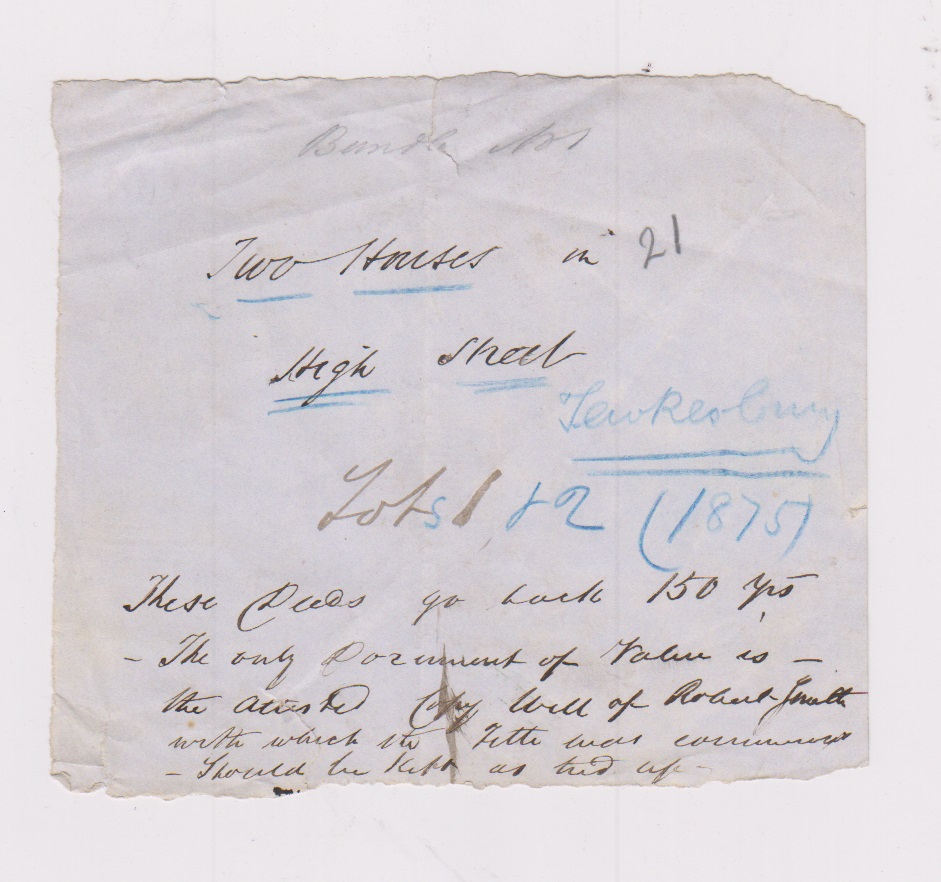 Bundle No 1
Two Houses in 21
High Street
Tewkesbury
Lots 1 & 2 (1875)
These Deeds go back 150 yrs
- The only Document of Value is -
the attested Copy Will of Robert Smith
with which the Title was commences
- Should be kept as tied up -